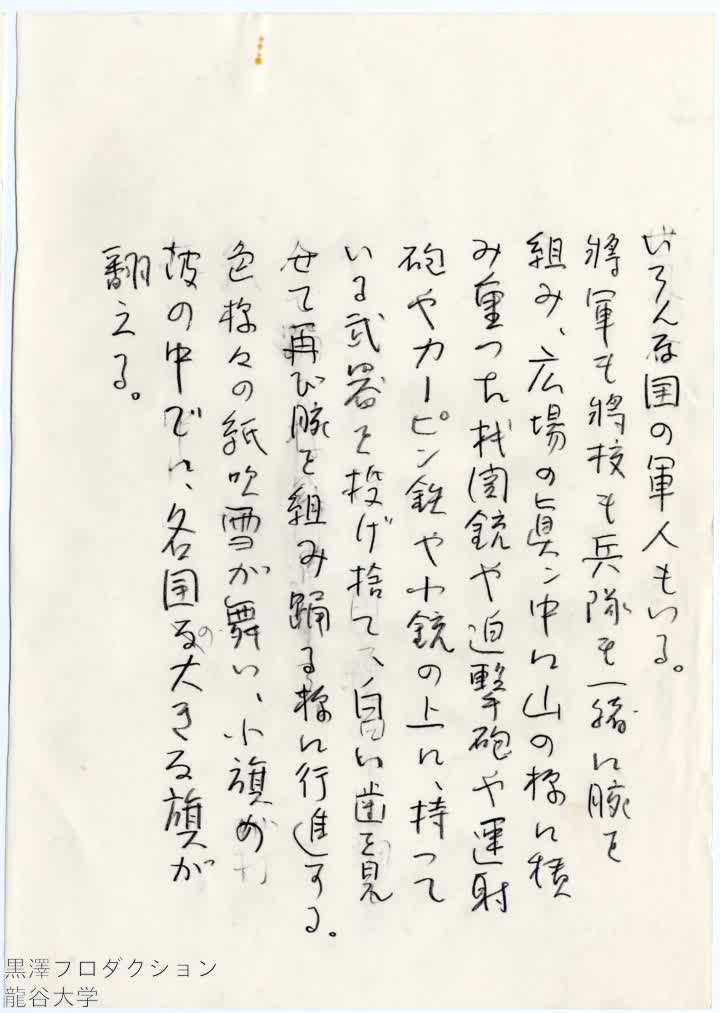 いろんな国の軍人もいる。
將軍も將校も兵隊も一緒に腕を
組み、広場の眞ン中に山の様に積
み重った機関銃や迫撃砲や連射
砲やカービン銃や小銃の上に、持って
いる武器を投げ捨て、白い歯を見
せて再び腕を組み踊る様に行進する。
色様々の紙吹雪が舞い、小旗が
波の中で、各国の大きな旗が
翻える。
黒澤プロダクション
龍谷大学